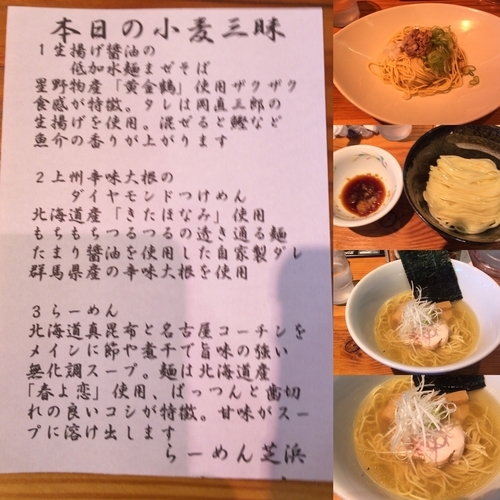 本日の小麦三昧
1生揚げ醤油の
低加水麺まぜそば
星野物産「黄金鶴」使用ザクザク
食感が特徴。タレは岡直三郎の
生揚げを使用。混ぜると鰹など
魚介の香りが上がります
2上州辛味大根の
ダイヤモンドつけめん
北海道産「きたほなみ」使用
もちもちつるつるの透き通る麺
たまり醤油を使用した自家製ダレ
群馬県産の辛味大根を使用
3らーめん
北海道真昆布と名古屋コーチンを
メインに節や煮干で旨味の強い
無化調スープ。麺は北海道産
「春よ恋」使用、ぱっつんと歯切
れの良いコシが特徴。甘味がスー
プに溶け出します
らーめん芝浜